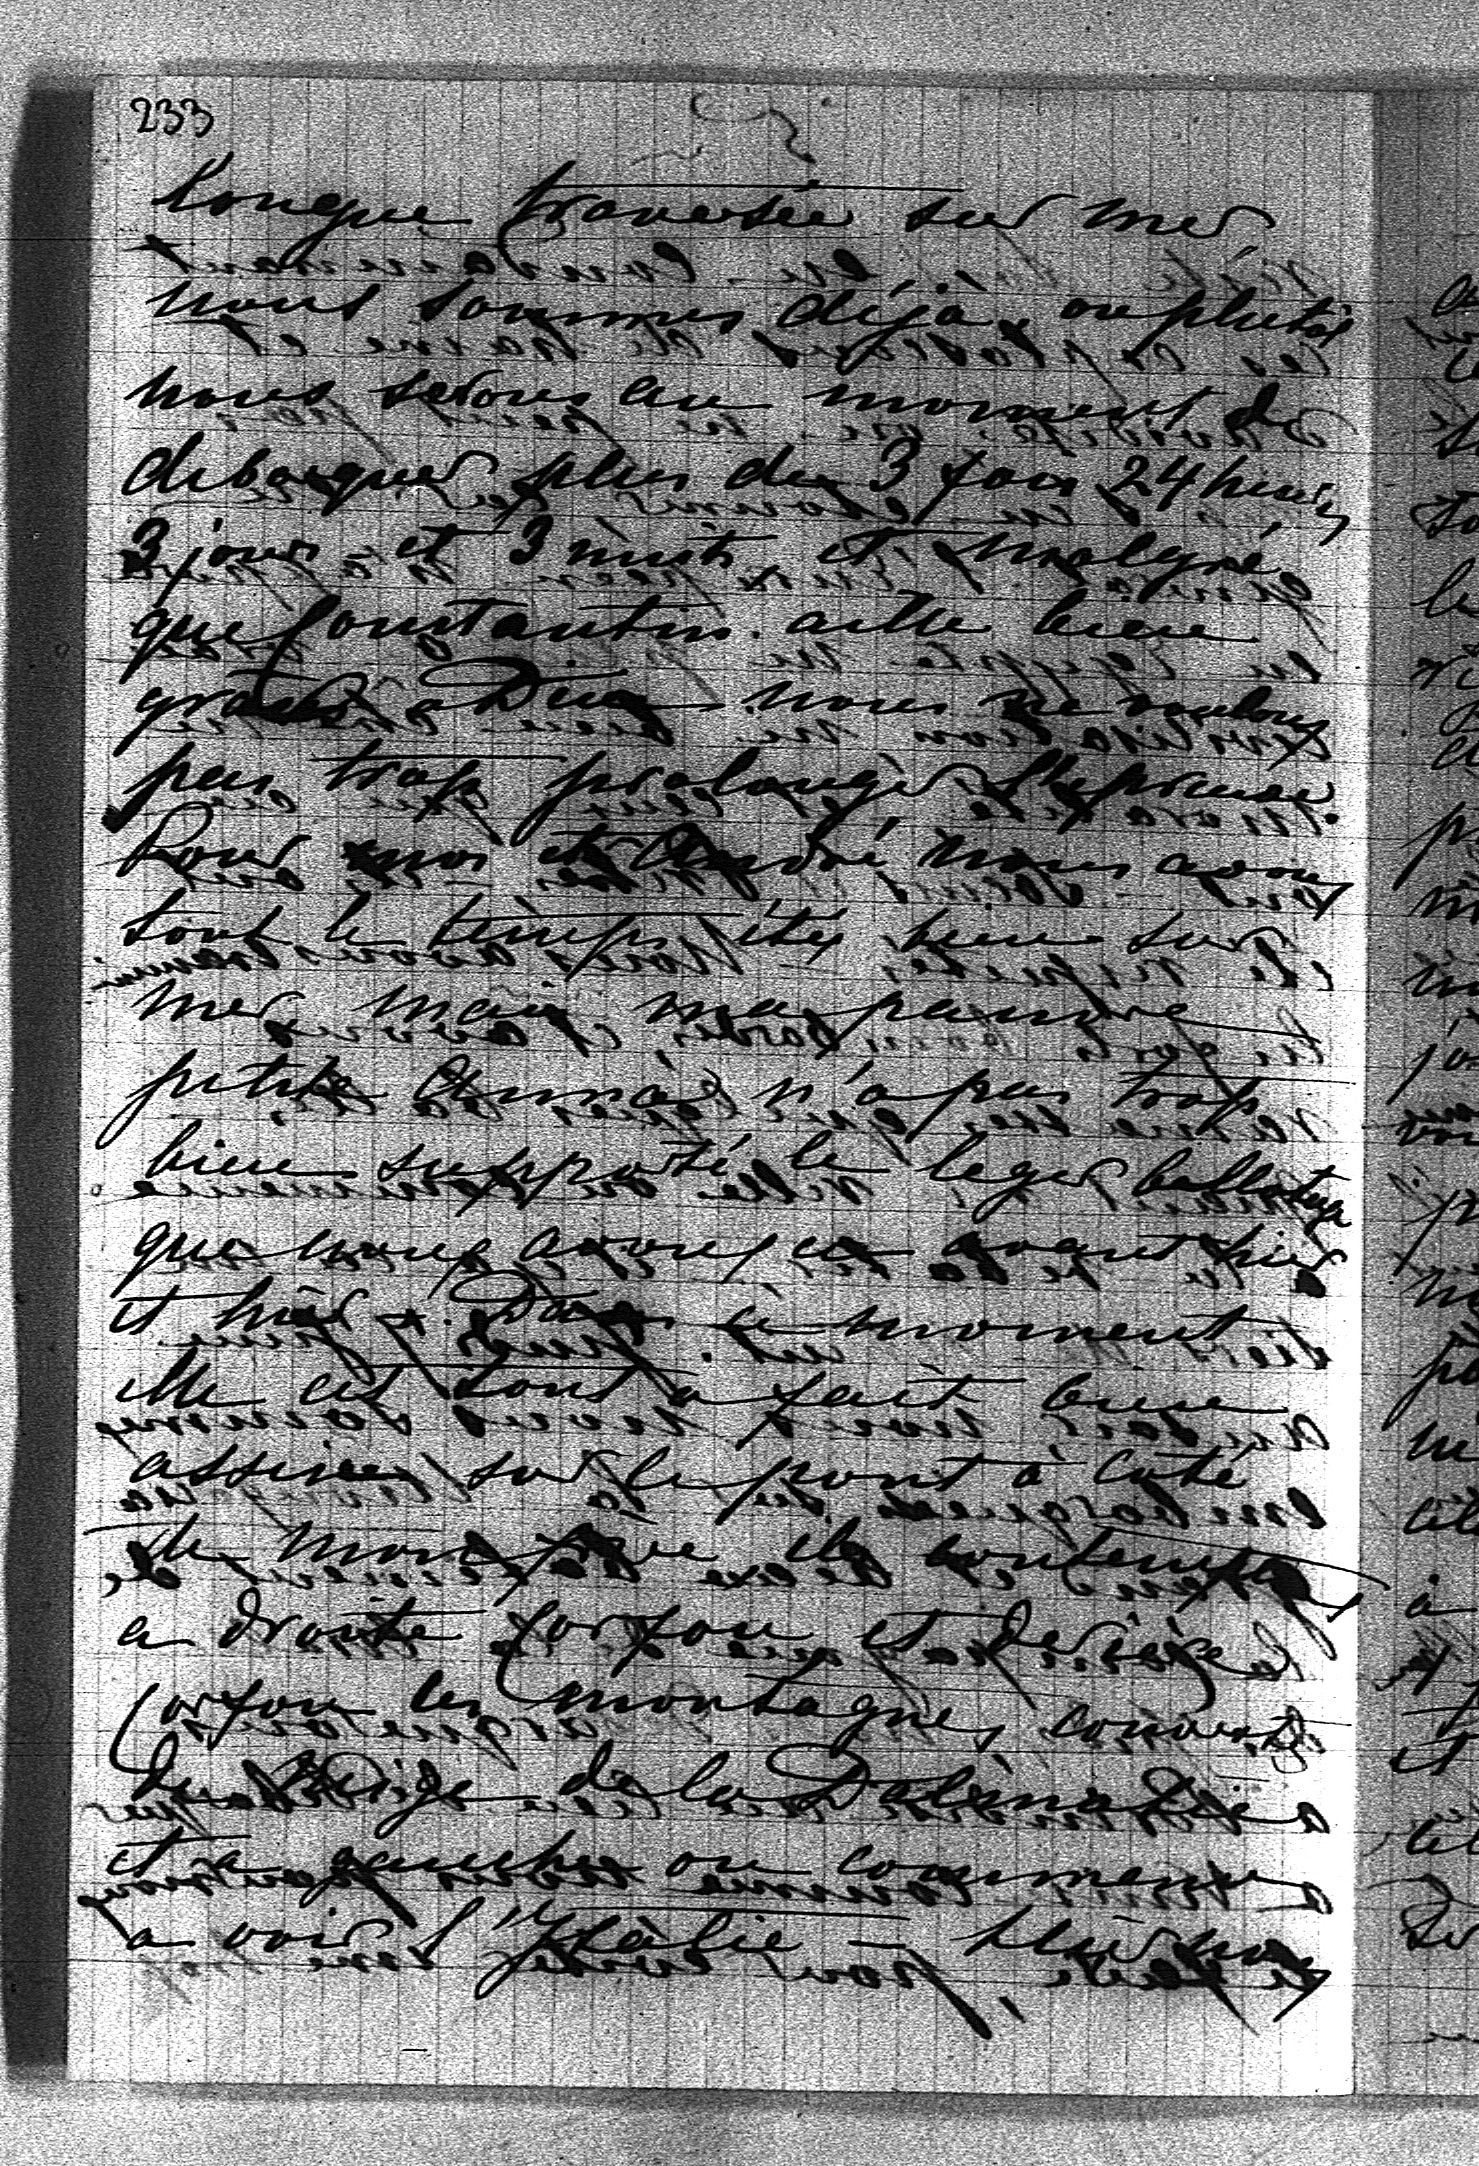 233
longue traversée sur mer,
nous sommes déjà, ou plutôt
nous serons au moment de
debarquer plus de 3 fois 24 heures
3 jours et 3 nuits et malgré
que Constantin aille bien
grace a Dieu nous ne voulons
pas trop prolonger l'épreuve.
Pour moi et André nous avons
tout le temps étés bien sur
mer, mais ma pauvre
petite Anna n'a pas trop
bien supporté le leger ballotage
que nous avons eu avant hier
et hier. Dans ce moment
elle est tout a fait bien
assise sur le pont à coté
de mon ils contemplent
a droite Corfou et derière
Corfou les montagnes couvertes
de neige de la Dalmatie
et a gauche on commence
a voir l'Italie —